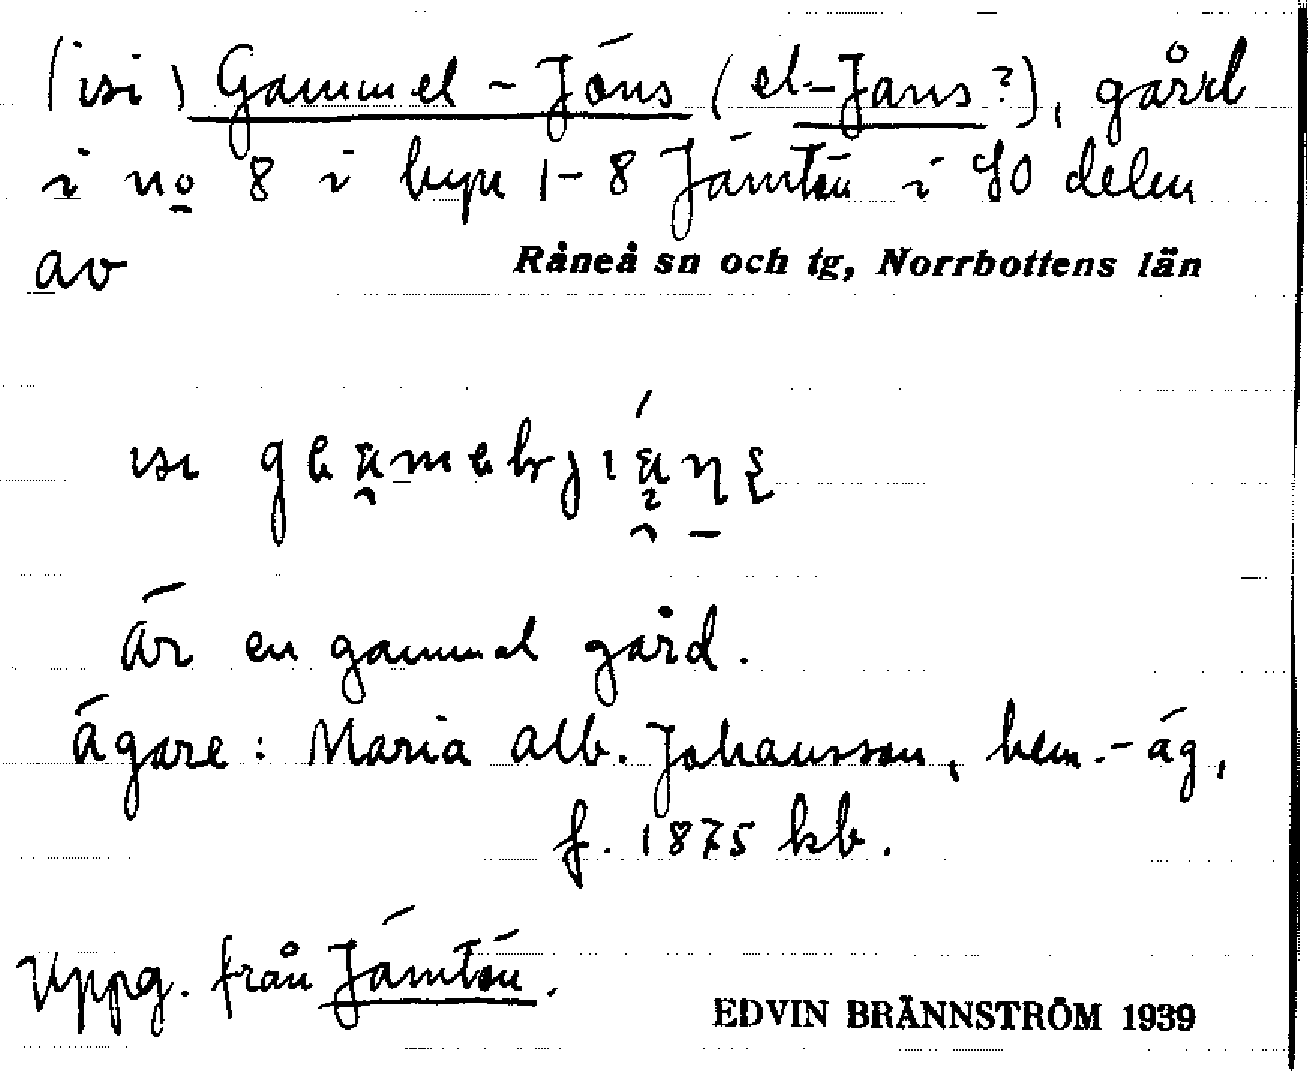 (isi) Gammel-Jöns (el-Jans?), gård
i no 8 i byn 1-8 Jämtön i SO delen
av Råneå sn och tg, Norrbottens län
isi
är en gammel gård.
ägare: Maria Alb. Johansson, hem.-äg,
f. 1875 kb.
Uppg. från Jämtön.
EDVIN BRÄNNSTRÖM 1939